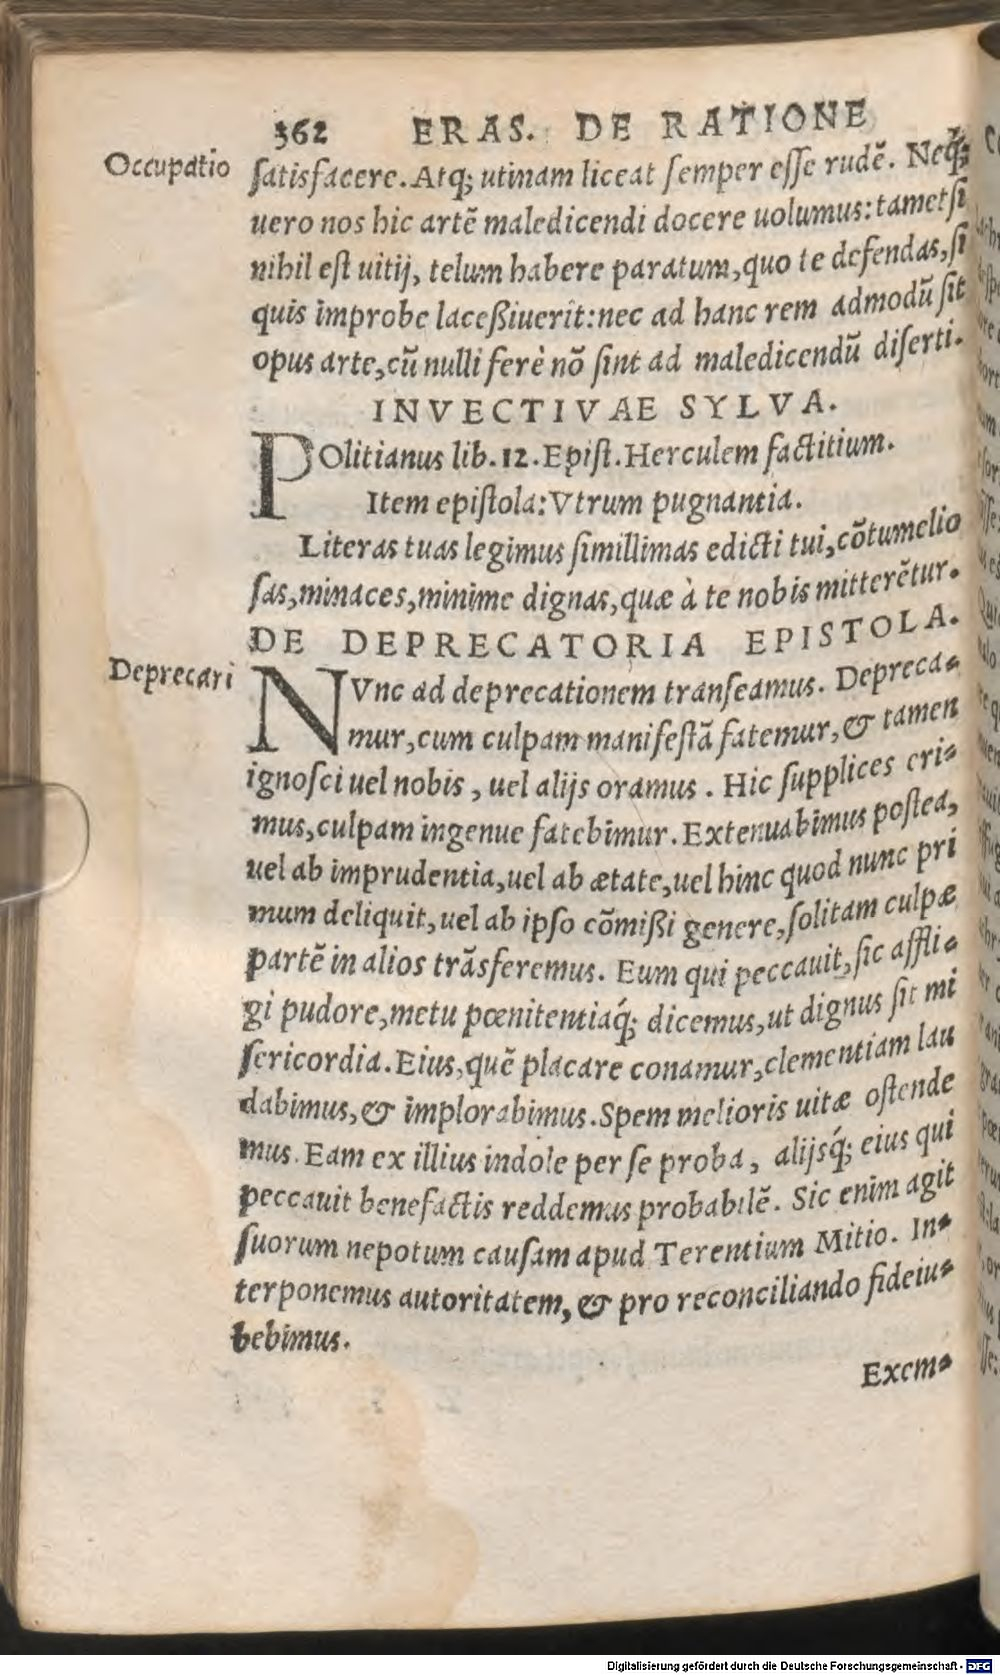 362 ERAS. DE RATIONE
Occupatio
satisfacere. Atq; utinam liceat semper esse rudẽ. Neq;
uero nos hic artẽ maledicendi docere uolumus: tametsi
nihil est uitij, telum habere paratum, quo te defendas, si
quis improbe laceßiuerit: nec ad hanc rem admodũ sit
opus arte, cũ nulli ferè nõ sint ad maledicendũ diserti.
INVECTIVAE SYLVA.
POlitianus lib. 12. Epist. Herculem factitium.
Item epistola: Vtrum pugnantia.
Literas tuas legimus simillimas edicti tui, cõtumelio
sas, minaces, minime dignas, quæ à te nobis mitterẽtur.
DE DEPRECATORIA EPISTOLA.
Deprecari
NVnc ad deprecationem transeamus. Depreca-
mur, cum culpam manifestã fatemur, & tamen
ignosci uel nobis, uel alijs oramus. Hic supplices eri-
mus, culpam ingenue fatebimur. Extenuabimus postea,
uel ab imprudentia, uel ab ætate, uel hinc quod nunc pri
mum deliquit, uel ab ipso cõmißi genere, solitam culpæ
partẽ in alios trãsferemus. Eum qui peccauit, sic affli-
gi pudore, metu pœnitentiaq́; dicemus, ut dignus sit mi
sericordia. Eius, quẽ placare conamur, clementiam lau
dabimus, & implorabimus. Spem melioris uitæ ostende
mus. Eam ex illius indole per se proba, alijsq́; eius qui
peccauit benefactis reddemus probabilẽ. Sic enim agit
suorum nepotum causam apud Terentium Mitio. In-
terponemus autoritatem, & pro reconciliando fideiu-
bebimus.
Exem-
Digitalisierung gefördert durch die Deutsche Forschungsgemeinschaft - DFG